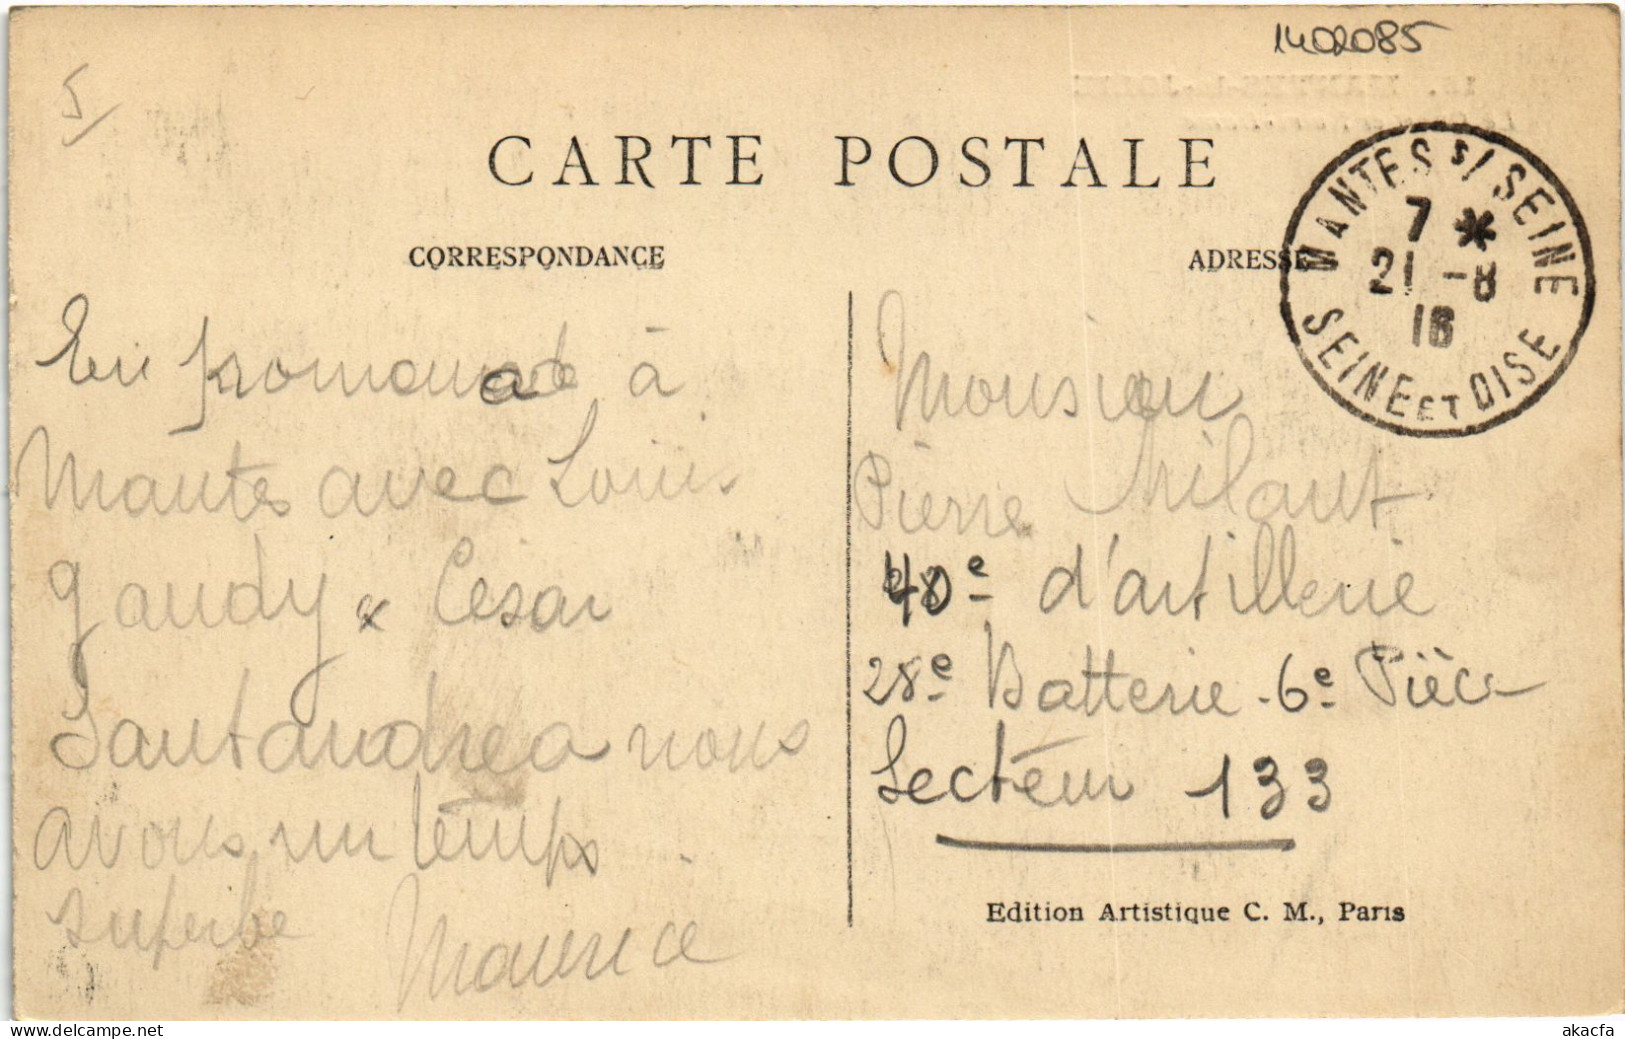 1402085
5/
CARTE POSTALE
MANTES S/ SEINE
7 *
21 -8
16
SEINE ET OISE
CORRESPONDANCE
ADRESSE
En promenade à
Mantes avec Louis
Gaudy & César
Santandrea nous
avons un temps
superbe
Maurice
Monsieur
Pierre Milaut
40e d'artillerie
28e Batterie - 6e Pièce
Secteur 133
Edition Artistique C. M., Paris
akacfa
delcampe.net